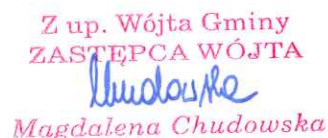 Z up. Wójta Gminy
ZASTĘPCA WÓJTA
Chudowska
Magdalena Chudowska